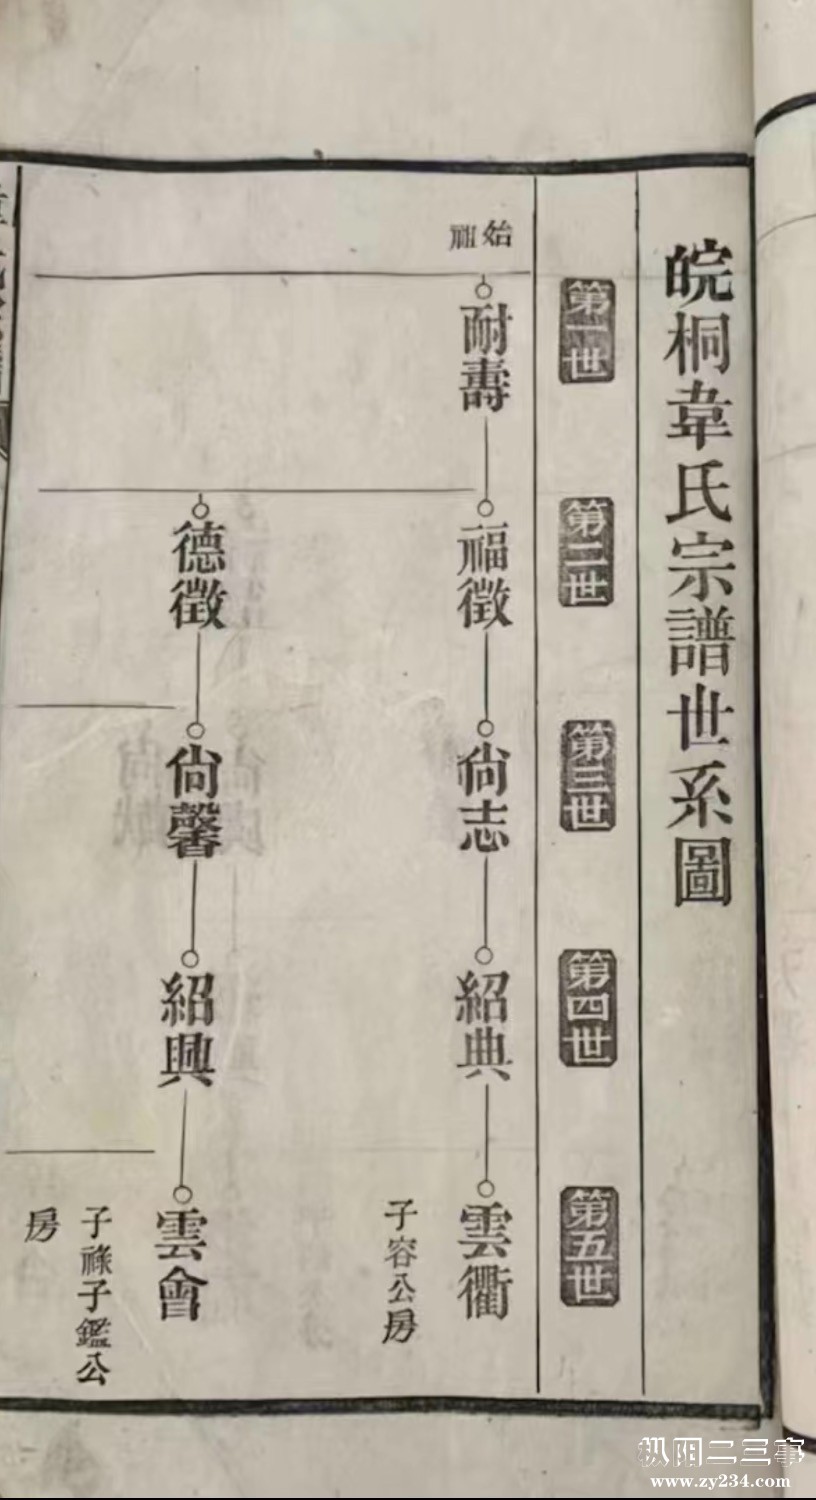 皖桐韋氏宗譜世系圖
第一世
第二世
第三世
第四世
第五世
始祖
耐壽
福徵
尙志
紹典
雲衢
子容公房
德徵
尙馨
紹興
雲會
子祿子鑑公
房
枞阳二三事
www.zy234.com